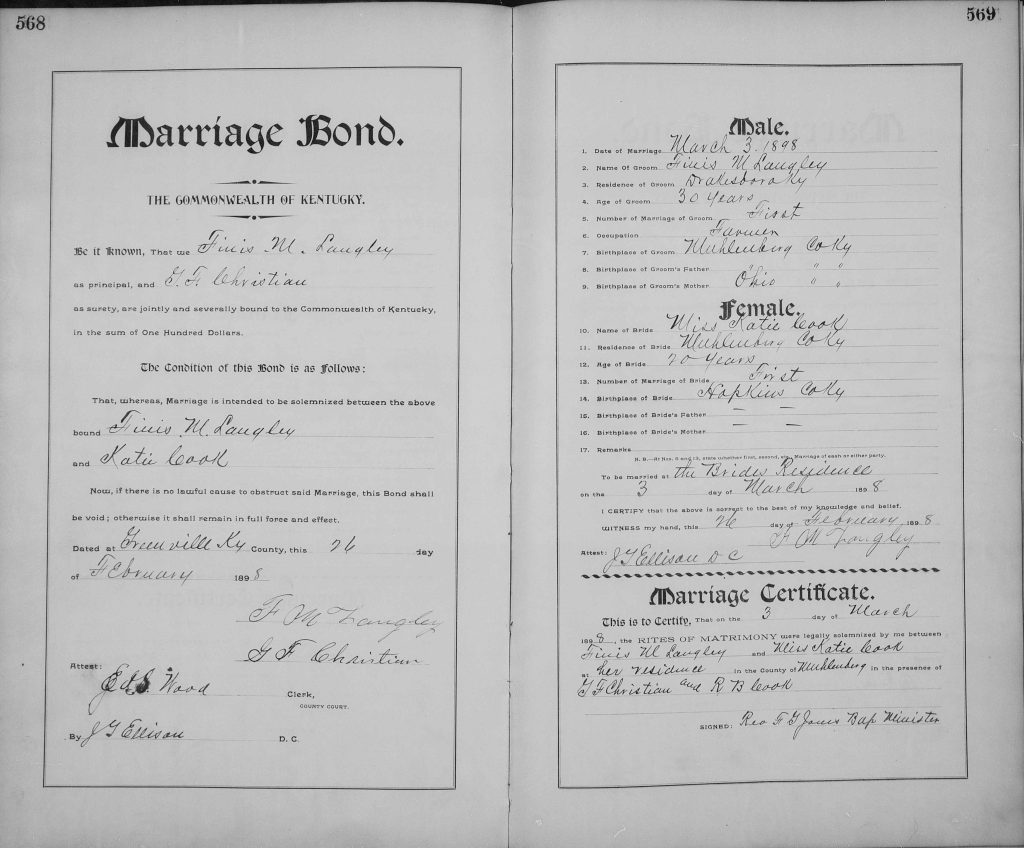 568
Marriage Bond.
THE COMMONWEALTH OF KENTUCKY.
Be it Known, That we Finis M. Langley
as principal, and G. F. Christian
as surety, are jointly and severally bound to the Commonwealth of Kentucky,
in the sum of One Hundred Dollars.
The Condition of this Bond is as Follows:
That, whereas, Marriage is intended to be solemnized between the above
bound Finis M. Langley
and Katie Cook
Now, if there is no lawful cause to obstruct said Marriage, this Bond shall
be void; otherwise it shall remain in full force and effect.
Dated at Greenville Ky County, this 26 day
of February 1898
F M Langley
G F Christian
Attest:
Ed S. Wood Clerk,
COUNTY COURT.
By J G Ellison D. C.
569
Male.
1. Date of Marriage March 3. 1898
2. Name Of Groom Finis M Langley
3. Residence of Groom Drakesboro Ky
4. Age of Groom 30 Years
5. Number of Marriage of Groom First
6. Occupation Farmer
7. Birthplace of Groom Muhlenberg Co Ky
8. Birthplace of Groom's Father " " "
9. Birthplace of Groom's Mother Ohio " "
Female.
10. Name of Bride Miss Katie Cook
11. Residence of Bride Muhlenberg Co Ky
12. Age of Bride 20 Years
13. Number of Marriage of Bride First
14. Birthplace of Bride Hopkins Co Ky
15. Birthplace of Bride's Father — —
16. Birthplace of Bride's Mother — —
17. Remarks
N. B.—At Nos. 5 and 13, state whether first, second, etc., Marriage of each or either party.
To be married at the Brides Residence
on the 3 day of March 1898
I CERTIFY that the above is correct to the best of my knowledge and belief.
WITNESS my hand, this 26 day of February 1898
F M Langley
Attest: J G Ellison D C
Marriage Certificate.
This is to Certify, That on the 3 day of March
1898, the RITES OF MATRIMONY were legally solemnized by me between
Finis M Langley and Miss Katie Cook
at her residence in the County of Muhlenberg in the presence of
G F Christian and R B Cook
SIGNED: Rev F G Jones Bap Minister